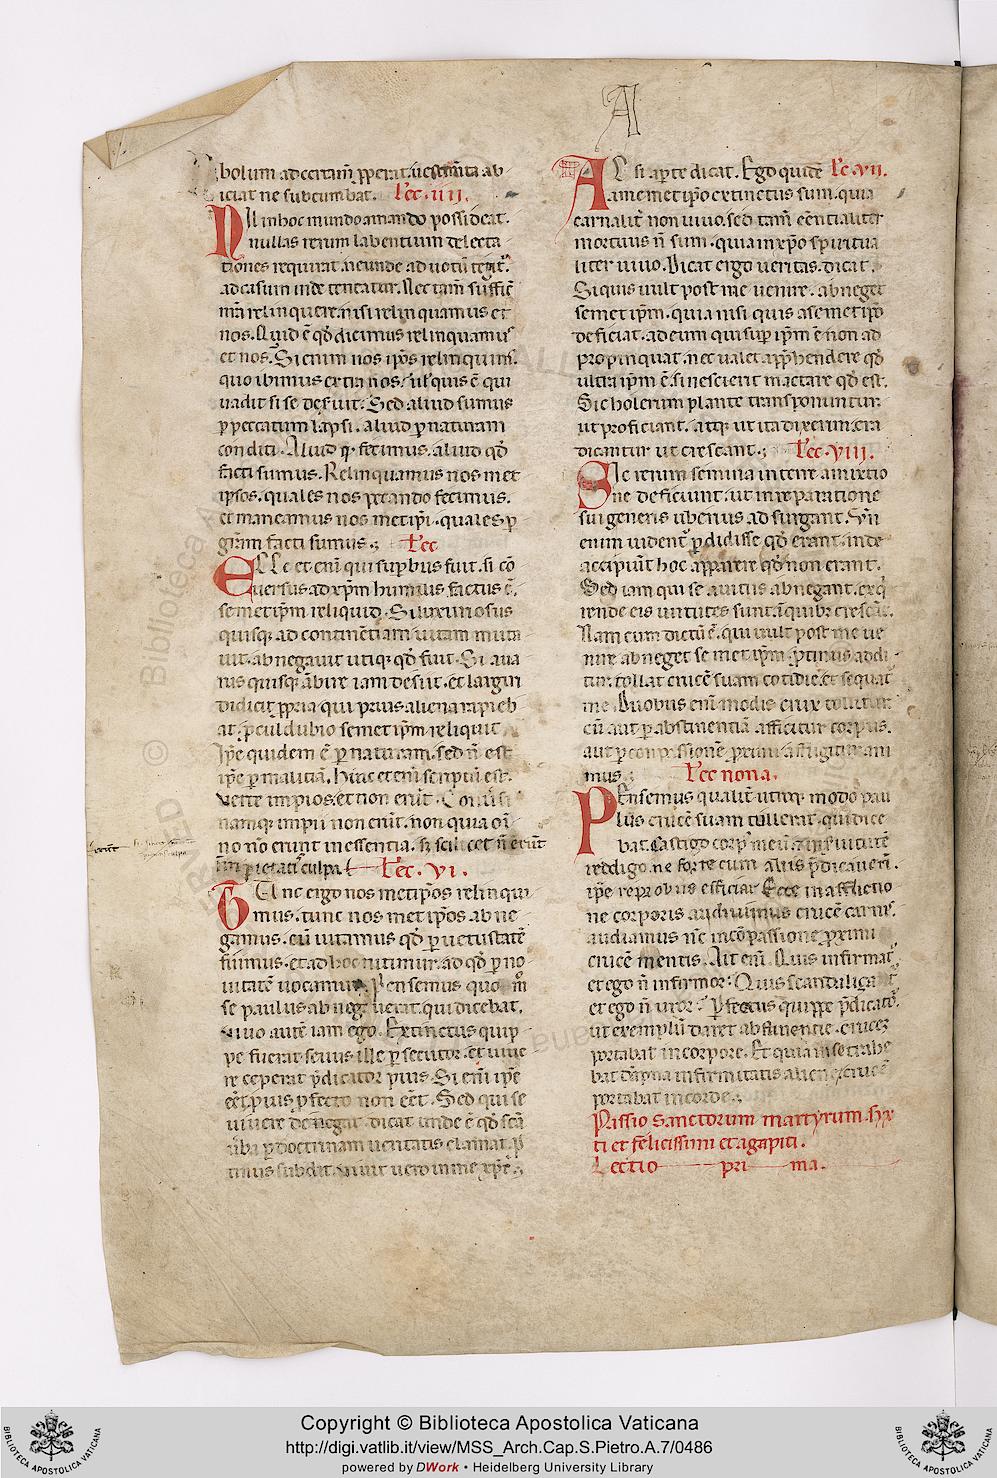 A
bolum ad certam̄ ꝓperat. uestimēta ab
iciat ne subcumbat. Lec. iiii.
Nil in hoc mundo amando possideat.
nullas rerum labentium delecta
tiones requirat. ne unde ad uotū tegit͛.
ad casum inde teneatur. Nec tam̄ suffic̄
nr̄a relinquere. nisi relinquamus et
nos. Quid ē qd̓ dicimus relinquamus
et nos. Si enim nos ip̄os relinquim͛.
quo ibimus extra nos. ul̓ quis ē qui
uadit si se deseruit. Sed aliud sumus
ꝑ peccatum lapsi. aliud ꝑ naturam
conditi. Aliud qd̓ fecimus. aliud qd̓
facti sumus. Relinquamus nos met
ipsos. quales nos peccando fecimus.
et maneamus nos metip̄i. quales ꝑ
gr̄am facti sumus. Lec
Ecce et eni᷑ qui suꝑbus fuit. si cō
uersus ad xp̄m humilis factus ē.
semet ip̄m reliquid. Si luxuriosus
quisq; ad continētiam uitam muta
uit. abnegauit utiq; qd̓ fuit. Si aua
rus quisq; ābire iam desiit. et largiri
didicit ꝓpria. qui prius aliena rapieb
at. ꝓcul dubio semet ip̄m reliquit.
Ip̄e quidem ē ꝑ naturam. sed n̄ est
ip̄e ꝑ malitiā. Hinc et eni᷑ scriptū est.
Verte impios. et non erūt. Conūsi
namq; impii non erūt. non quia oī
no nō erunt in essentia. s; scilicet n̄ erūt
in īpietatis culpa Lec. vi.
Tunc ergo nos metip̄os relinqui
mus. tunc nos met ip̄os abne
gamus. cū uitamus qd̓ ꝑ uetustatē
fuimus. et ad hoc nitimur. ad qd̓ ꝑ no
uitatē uocamur. Pensemus quom̄o
se paulus abnegauerat. qui dicebat.
Viuo autē iam ego. Extinctus quip
pe fuerat seuus ille ꝑsecutor. et uiue
re ceperat p̄dicator pius. Si eni᷑ ip̄e
eēt. pius ꝓfecto non eēt. Sed qui se
uiuere denegat. dicat unde ē qd̓ sc̄a
uerba ꝑ doctrinam ueritatis clamat. ꝓ
tinus subdit. Viuit uero in me xp̄c.
Ac si aꝑte dicat. Ego quidē Lec. vii.
a memet ip̄o extinctus sum. quia
carnalit̓ non uiuo. sed tam̄ eēntialiter
mortuus n̄ sum. quia in xp̄o spiritua
liter uiuo. Dicat ergo ueritas. dicat.
Si quis uult post me uenire. abneget
semet ip̄m. quia nisi quis a semet ip̄o
deficiat. ad eum qui suꝑ ip̄m ē non ad
propinquat. nec ualet app̄hendere qd̓
ultra ip̄m ē. si nescierit mactare qd̓ est.
Sic holerum plante transponuntur
ut proficiant. atq; ut ita dixerim era
dicantur ut crescant. Lec. viii.
Sic rerum semina in terre amixtio
ne deficiunt. ut in reparatione
sui generis uberius adsurgant. Vn̄
enim uident͛ ꝑdidisse qd̓ erant. inde
accipiūt hoc apparere qd̓ non erant.
Sed iam qui se a uitiis abnegant. exq̄
rende eis uirtutes sunt. ī quib; crescāt.
Nam cum dictū ē. qui uult post me ue
nire abneget semet ip̄m. ꝓtinus addi
tur. tollat crucē suam cotidie. et sequat͛
me. Duobus eni᷑ modis crux tollitur.
cū aut ꝑ abstinentiā afficitur corpus.
aut ꝑ compassionē proximi affligitur ani
mus. Lec nona.
Pensemus qualit̓ utrūq; modo pau
lus crucē suam tullerat. qui dice
bat. Castigo corp͛ meū. et in seruitutē
reddigo. ne forte cum aliis p̄dicauerī.
ip̄e reprobus efficiar. Ecce in afflictio
ne corporis audiuimus crucē carnis.
audiamus nc̄ in cōpassione proximi
crucē mentis. Ait eni᷑. Quis infirmat͛.
et ego n̄ infirmor. Quis scandalizat͛
et ego n̄ uror. Perfectus quippe p̄dicator.
ut exemplū daret abstinentie. crucē
portabat in corpore. Et quia in se trahe
bat dāpna infirmitatis aliene. crucē
portabat in corde.
Passio sanctorum martyrum. syx
ti et felicissimi et agapiti.
Lectio pri ma.
Copyright © Biblioteca Apostolica Vaticana
http://digi.vatlib.it/view/MSS_Arch.Cap.S.Pietro.A.7/0486
powered by DWork • Heidelberg University Library
BIBLIOTECA APOSTOLICA VATICANA
BIBLIOTECA APOSTOLICA VATICANA